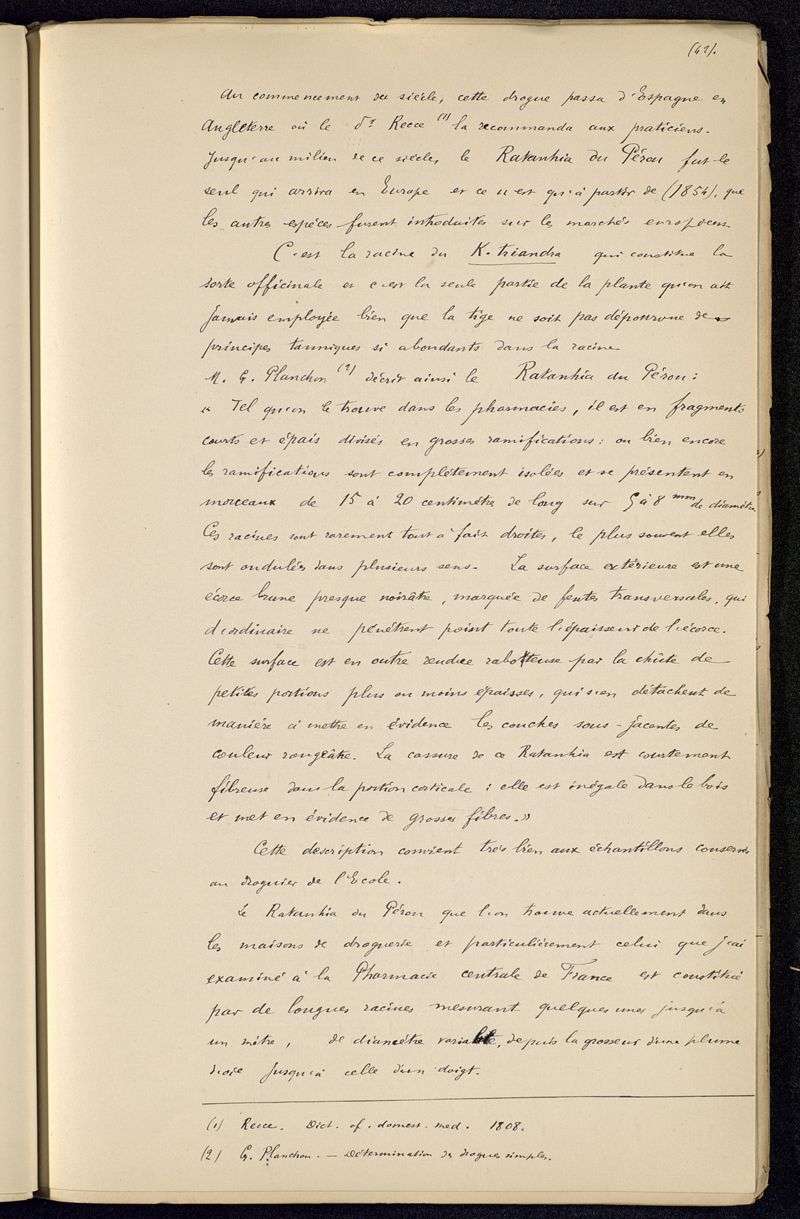 (42).
Au commencement du siècle, cette drogue passa d'Espagne en
Angleterre où le dr Reece (1) la recommanda aux praticiens.
Jusqu'au milieu de ce siècle, le Ratanhia du Pérou fut le
seul qui arriva en Europe et ce n'est qu'à partir de (1854), que
les autres espèces furent introduites sur les marchés européens.
C'est la racine du K. triandra qui constitue la
sorte officinale et c'est la seule partie de la plante qu'on ait
jamais employée bien que la tige ne soit pas dépourvue des
principes tanniques si abondants dans la racine
M. G. Planchon (2) décrit ainsi le Ratanhia du Pérou :
« Tel qu'on le trouve dans les pharmacies, il est en fragments
courts et épais divisés en grosses ramifications : ou bien encore
les ramifications sont complètement isolées et se présentent en
morceaux de 15 à 20 centimètres de long sur 5 à 8 mm de diamètre
Ces racines sont rarement tout à fait droites, le plus souvent elles
sont ondulées dans plusieurs sens. La surface extérieure est une
écorce brune presque noirâtre, marquée de fentes transversales, qui
d'ordinaire ne pénètrent point toute l'épaisseur de l'écorce.
Cette surface est en outre rendue raboteuse par la chûte de
petites portions plus ou moins épaisses, qui s'en détachent de
manière à mettre en évidence les couches sous-jacentes de
couleur rougeâtre. La cassure de ce Ratanhia est courtement
fibreuse dans la portion corticale : elle est inégale dans le bois
et met en évidence de grosses fibres. »
Cette description convient très bien aux échantillons conservés
au droguier de l'Ecole.
Le Ratanhia du Pérou que l'on trouve actuellement dans
les maisons de droguerie et particulièrement celui que j'ai
examiné à la Pharmacie centrale de France est constitué
par de longues racines mesurant quelques unes jusqu'à
un mètre, de diamètre variable, depuis la grosseur d'une plume
d'oie jusqu'à celle d'un doigt.
(1) Reece. Dict. of. domest. med. 1808.
(2) G. Planchon. — Détermination des drogues simples.